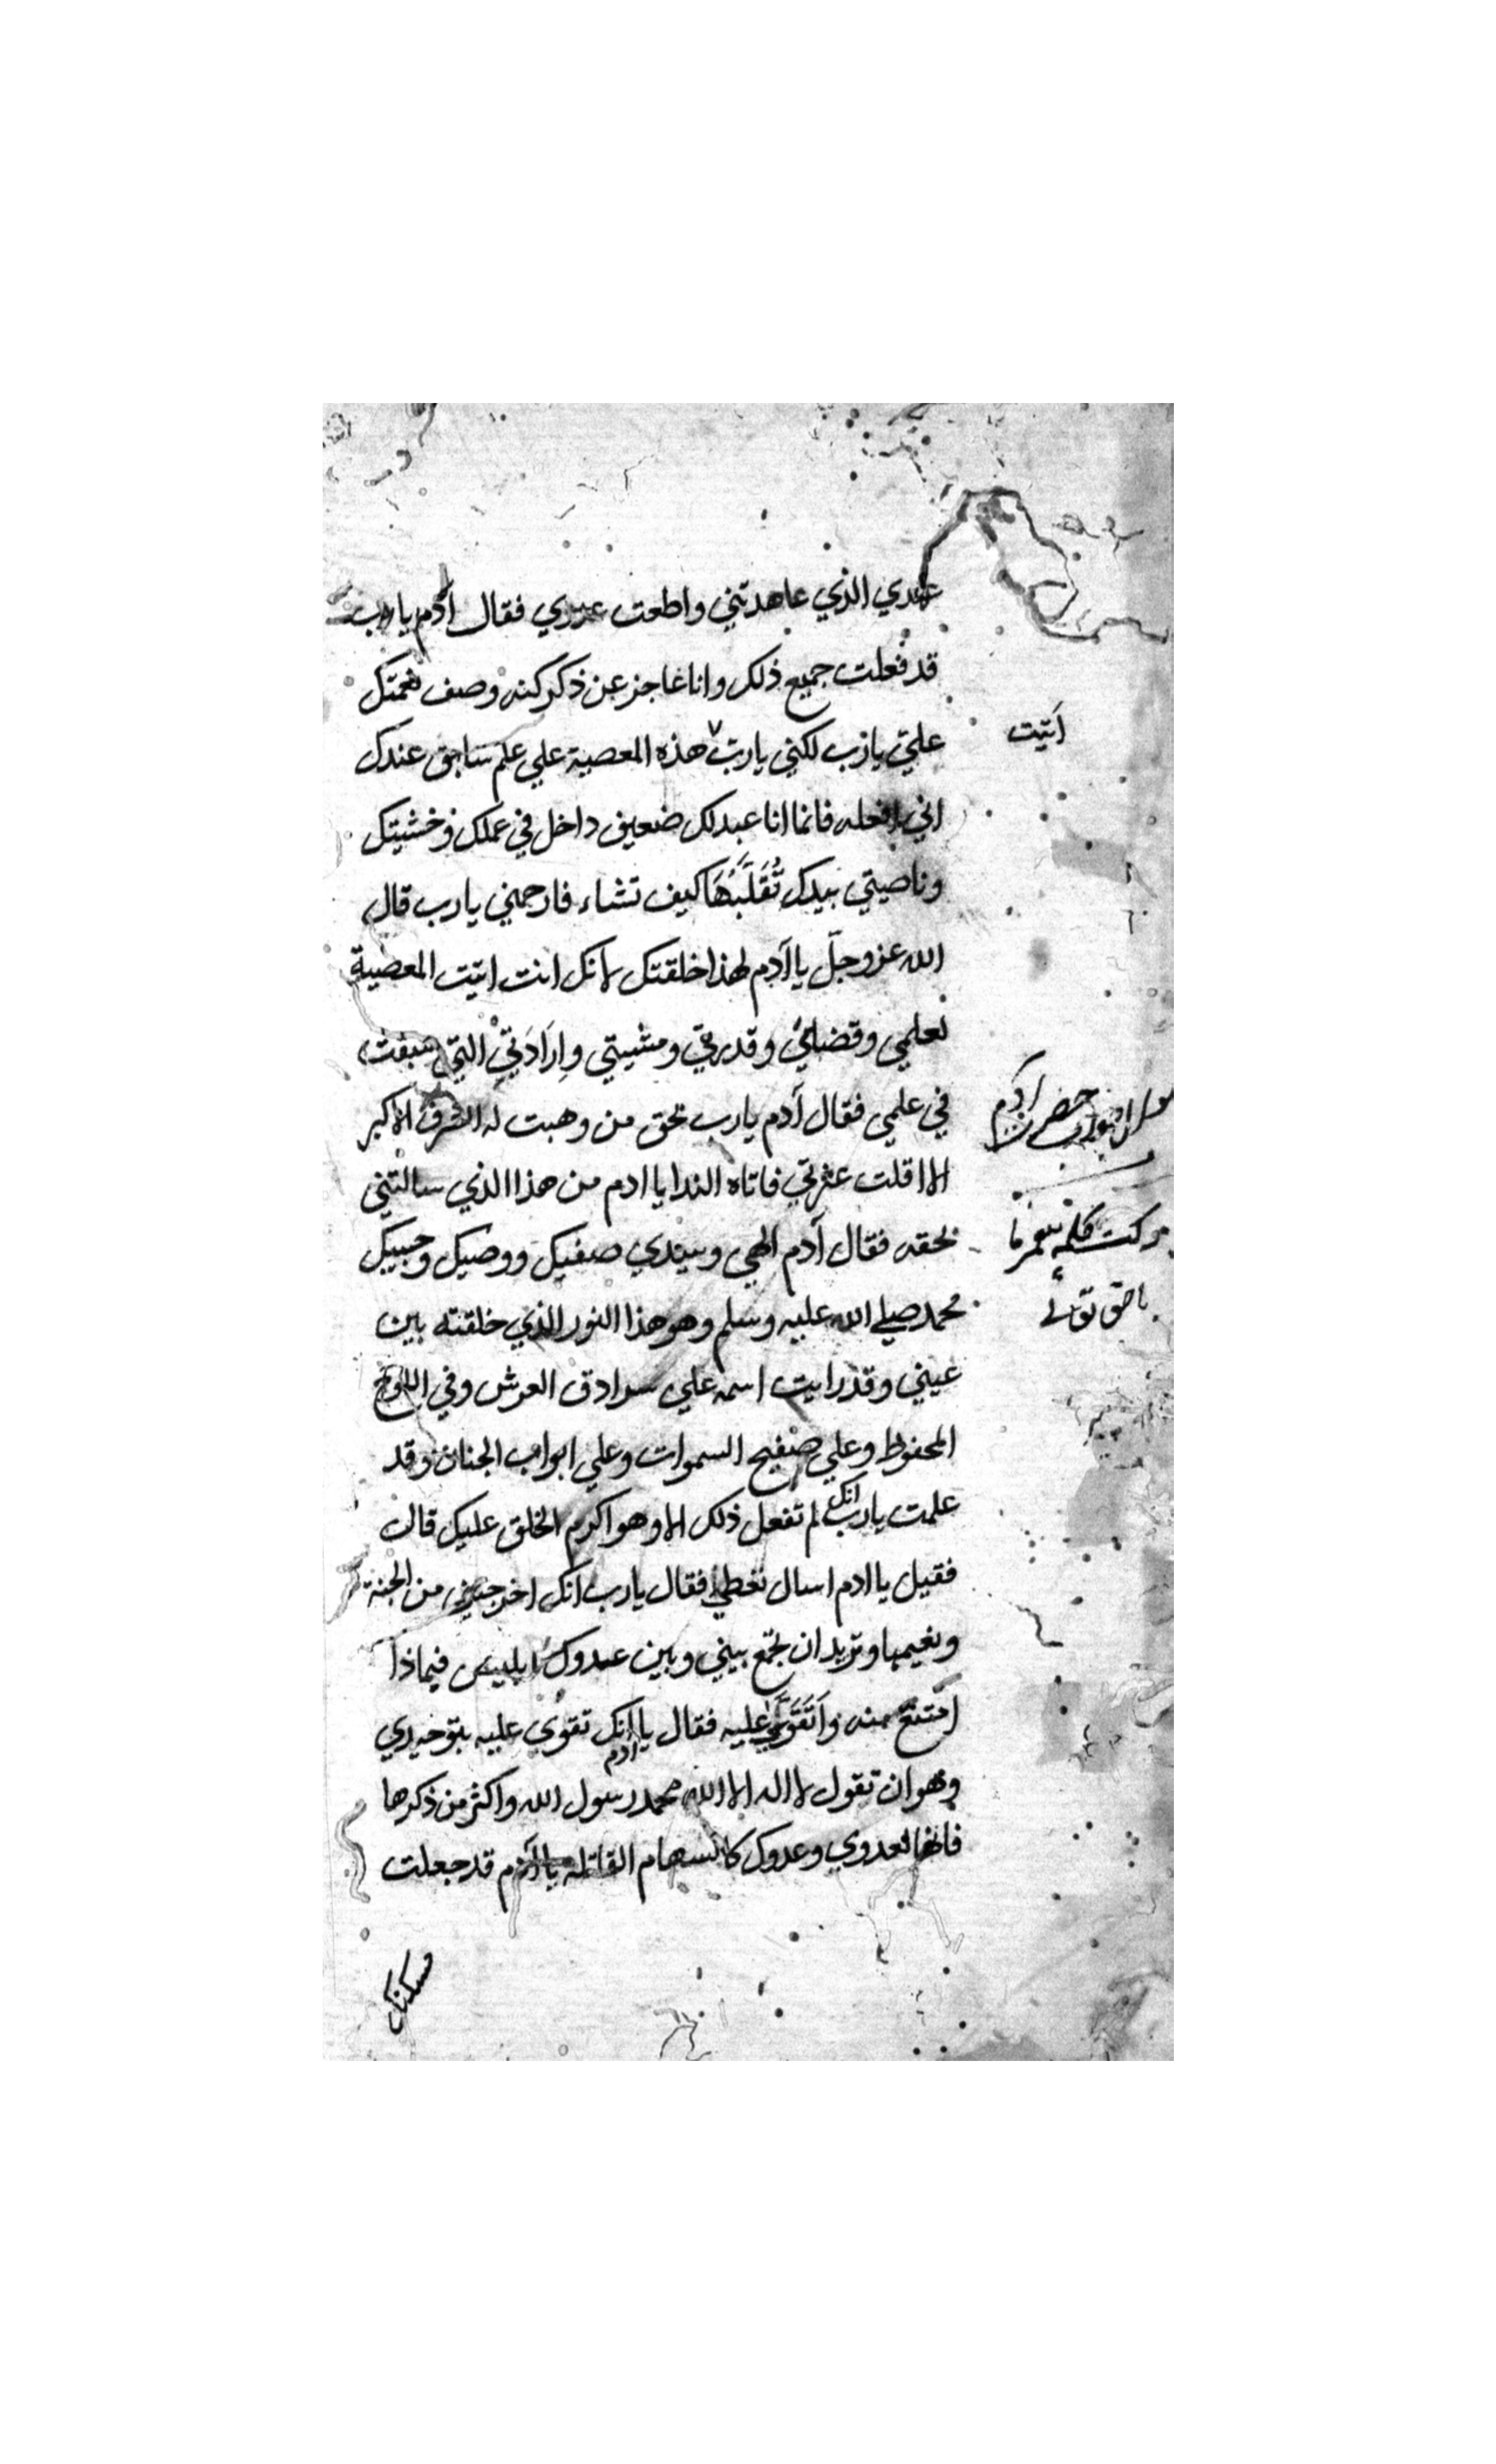 عهدي الذي عاهدتني واطعت عدوي فقال آدم يارب
قد فعلت جميع ذلك وانا عاجز عن ذكر كنه وصف نعمتك
علي يارب لكني يارب هذه المعصية علي علم سابق عندك
اتيت
اني افعله فانما انا عبدلك ضعيف داخل في عملك وخشيتك
وناصيتي بيدك تُقَلِّبُهَا كيف تشاء فارحمني يارب قال
الله عز وجلّ يا آدم لهذا خلقتك لانك انت اتيت المعصية
بعلمي وقضائي وقدرتي ومشيتي وإرَادَتِي التي سبقت
في علمي فقال آدم يارب بحق من وهبت له الشرف الاكبر
الا اقلت عثرتي فاتاه الندا يا ادم من هذا الذي سالتني
بحقه فقال آدم الهي وسيدي صفيك ووصيك وحبيبك
محمد صلي الله عليه وسلم وهو هذا النور الذي خلقته بين
عيني وقد رايت اسمه علي سرادق العرش وفي اللوح
المحفوظ وعلي صفيح السموات وعلي ابواب الجنان وقد
علمت يارب انك لم تفعل ذلك الا وهو اكرم الخلق عليك قال
فقيل يا ادم اسال تعطي فقال يارب انك اخرجتني من الجنة
ونعيمها وتريد ان تجمع بيني وبين عدوك ابليس فيماذا
امتنع منه واَتَقَوَّي عليه فقال يا ادم انك تقوي عليه بتوحيدي
وهو ان تقول لا اله الا الله محمد رسول الله واكثر من ذكرها
فانها لعدوي وعدوك كالسهام القاتله يا آدم قد جعلت
مسكنك